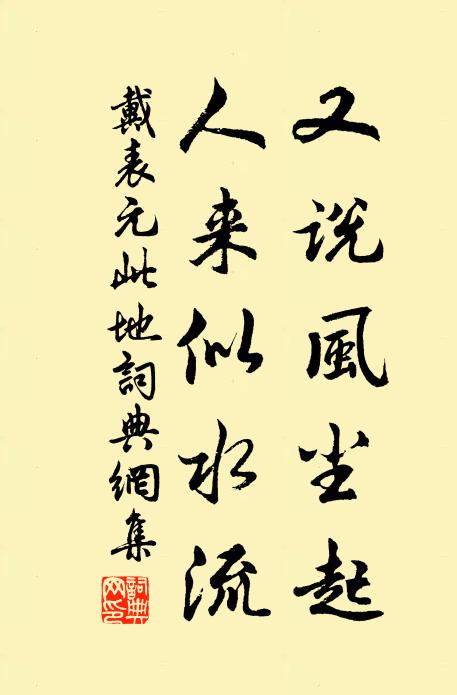 又説風尘起
人来似水流
戴表元此地詞典網集
詞典网印